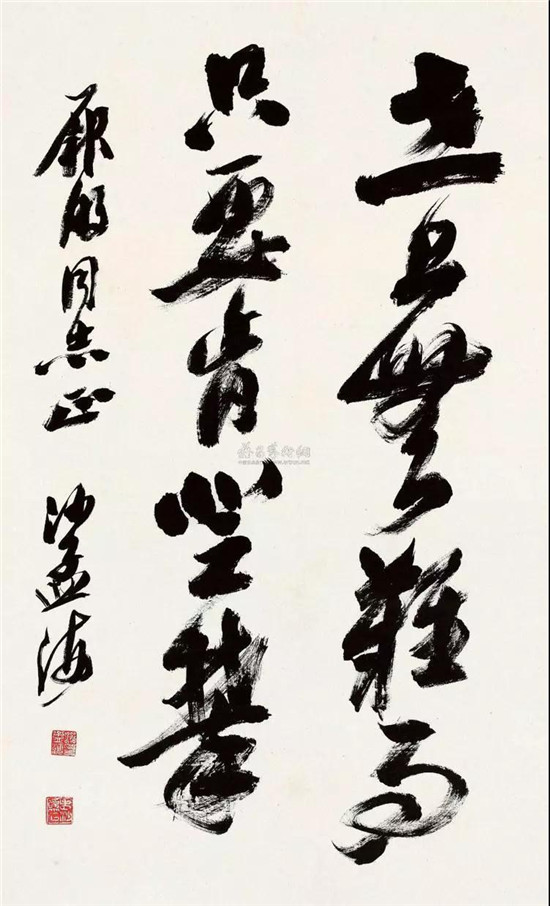 世上無難事
只要肯登攀
同志正 沙孟海